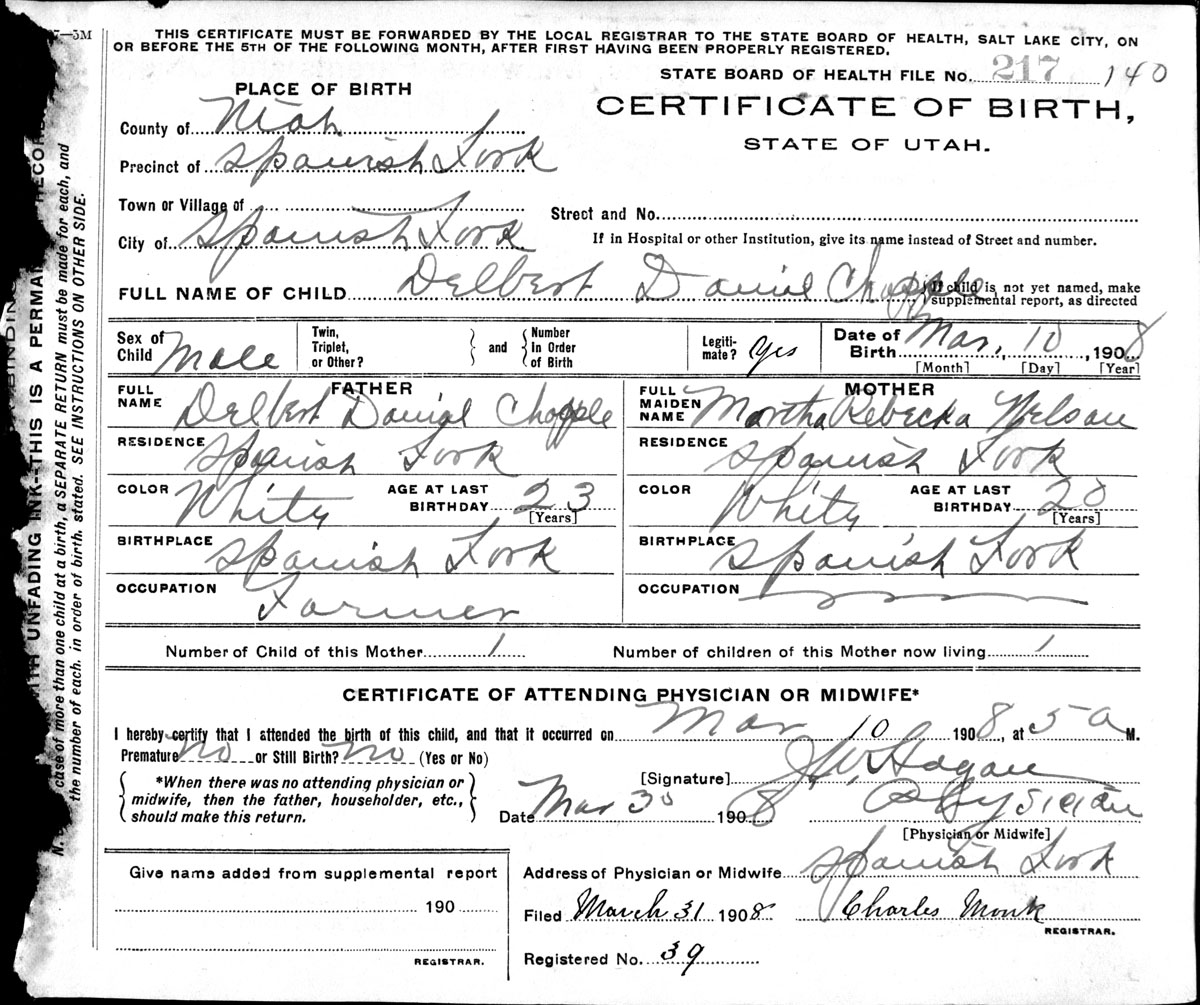 7—3M
THIS CERTIFICATE MUST BE FORWARDED BY THE LOCAL REGISTRAR TO THE STATE BOARD OF HEALTH, SALT LAKE CITY, ON
OR BEFORE THE 5TH OF THE FOLLOWING MONTH, AFTER FIRST HAVING BEEN PROPERLY REGISTERED.
STATE BOARD OF HEALTH FILE No. 217 140
PLACE OF BIRTH
CERTIFICATE OF BIRTH,
STATE OF UTAH.
County of Utah
Precinct of Spanish Fork
Town or Village of
Street and No.
City of Spanish Fork
If in Hospital or other Institution, give its name instead of Street and number.
FULL NAME OF CHILD Delbert Danial Chapple
If child is not yet named, make
supplemental report, as directed
Sex of Child Male
Twin, Triplet, or Other? and Number In Order of Birth
Legiti-mate? Yes
Date of Birth Mar. 10, 1908
[Month] [Day] [Year]
FATHER
FULL NAME Delbert Danial Chapple
MOTHER
FULL MAIDEN NAME Martha Rebecka Nelson
RESIDENCE Spanish Fork
RESIDENCE Spanish Fork
COLOR White AGE AT LAST BIRTHDAY 23 [Years]
COLOR White AGE AT LAST BIRTHDAY 20 [Years]
BIRTHPLACE Spanish Fork
BIRTHPLACE Spanish Fork
OCCUPATION Farmer
OCCUPATION
Number of Child of this Mother 1 Number of children of this Mother now living 1
CERTIFICATE OF ATTENDING PHYSICIAN OR MIDWIFE*
I hereby certify that I attended the birth of this child, and that it occurred on Mar 10 1908, at 5 a M.
Premature No or Still Birth? No (Yes or No)
*When there was no attending physician or
midwife, then the father, householder, etc.,
should make this return.
[Signature] J.W. Hagan
Date Mar 30 1908 Physician
[Physician or Midwife]
Address of Physician or Midwife Spanish Fork
Give name added from supplemental report
190
REGISTRAR.
Filed March 31 1908 Charles Monk
REGISTRAR.
Registered No. 39
BINDING
WITH UNFADING INK--THIS IS A PERMAN RECORD
N. case of more than one child at a birth, a SEPARATE RETURN must be made for each, and
the number of each, in order of birth, stated. SEE INSTRUCTIONS ON OTHER SIDE.